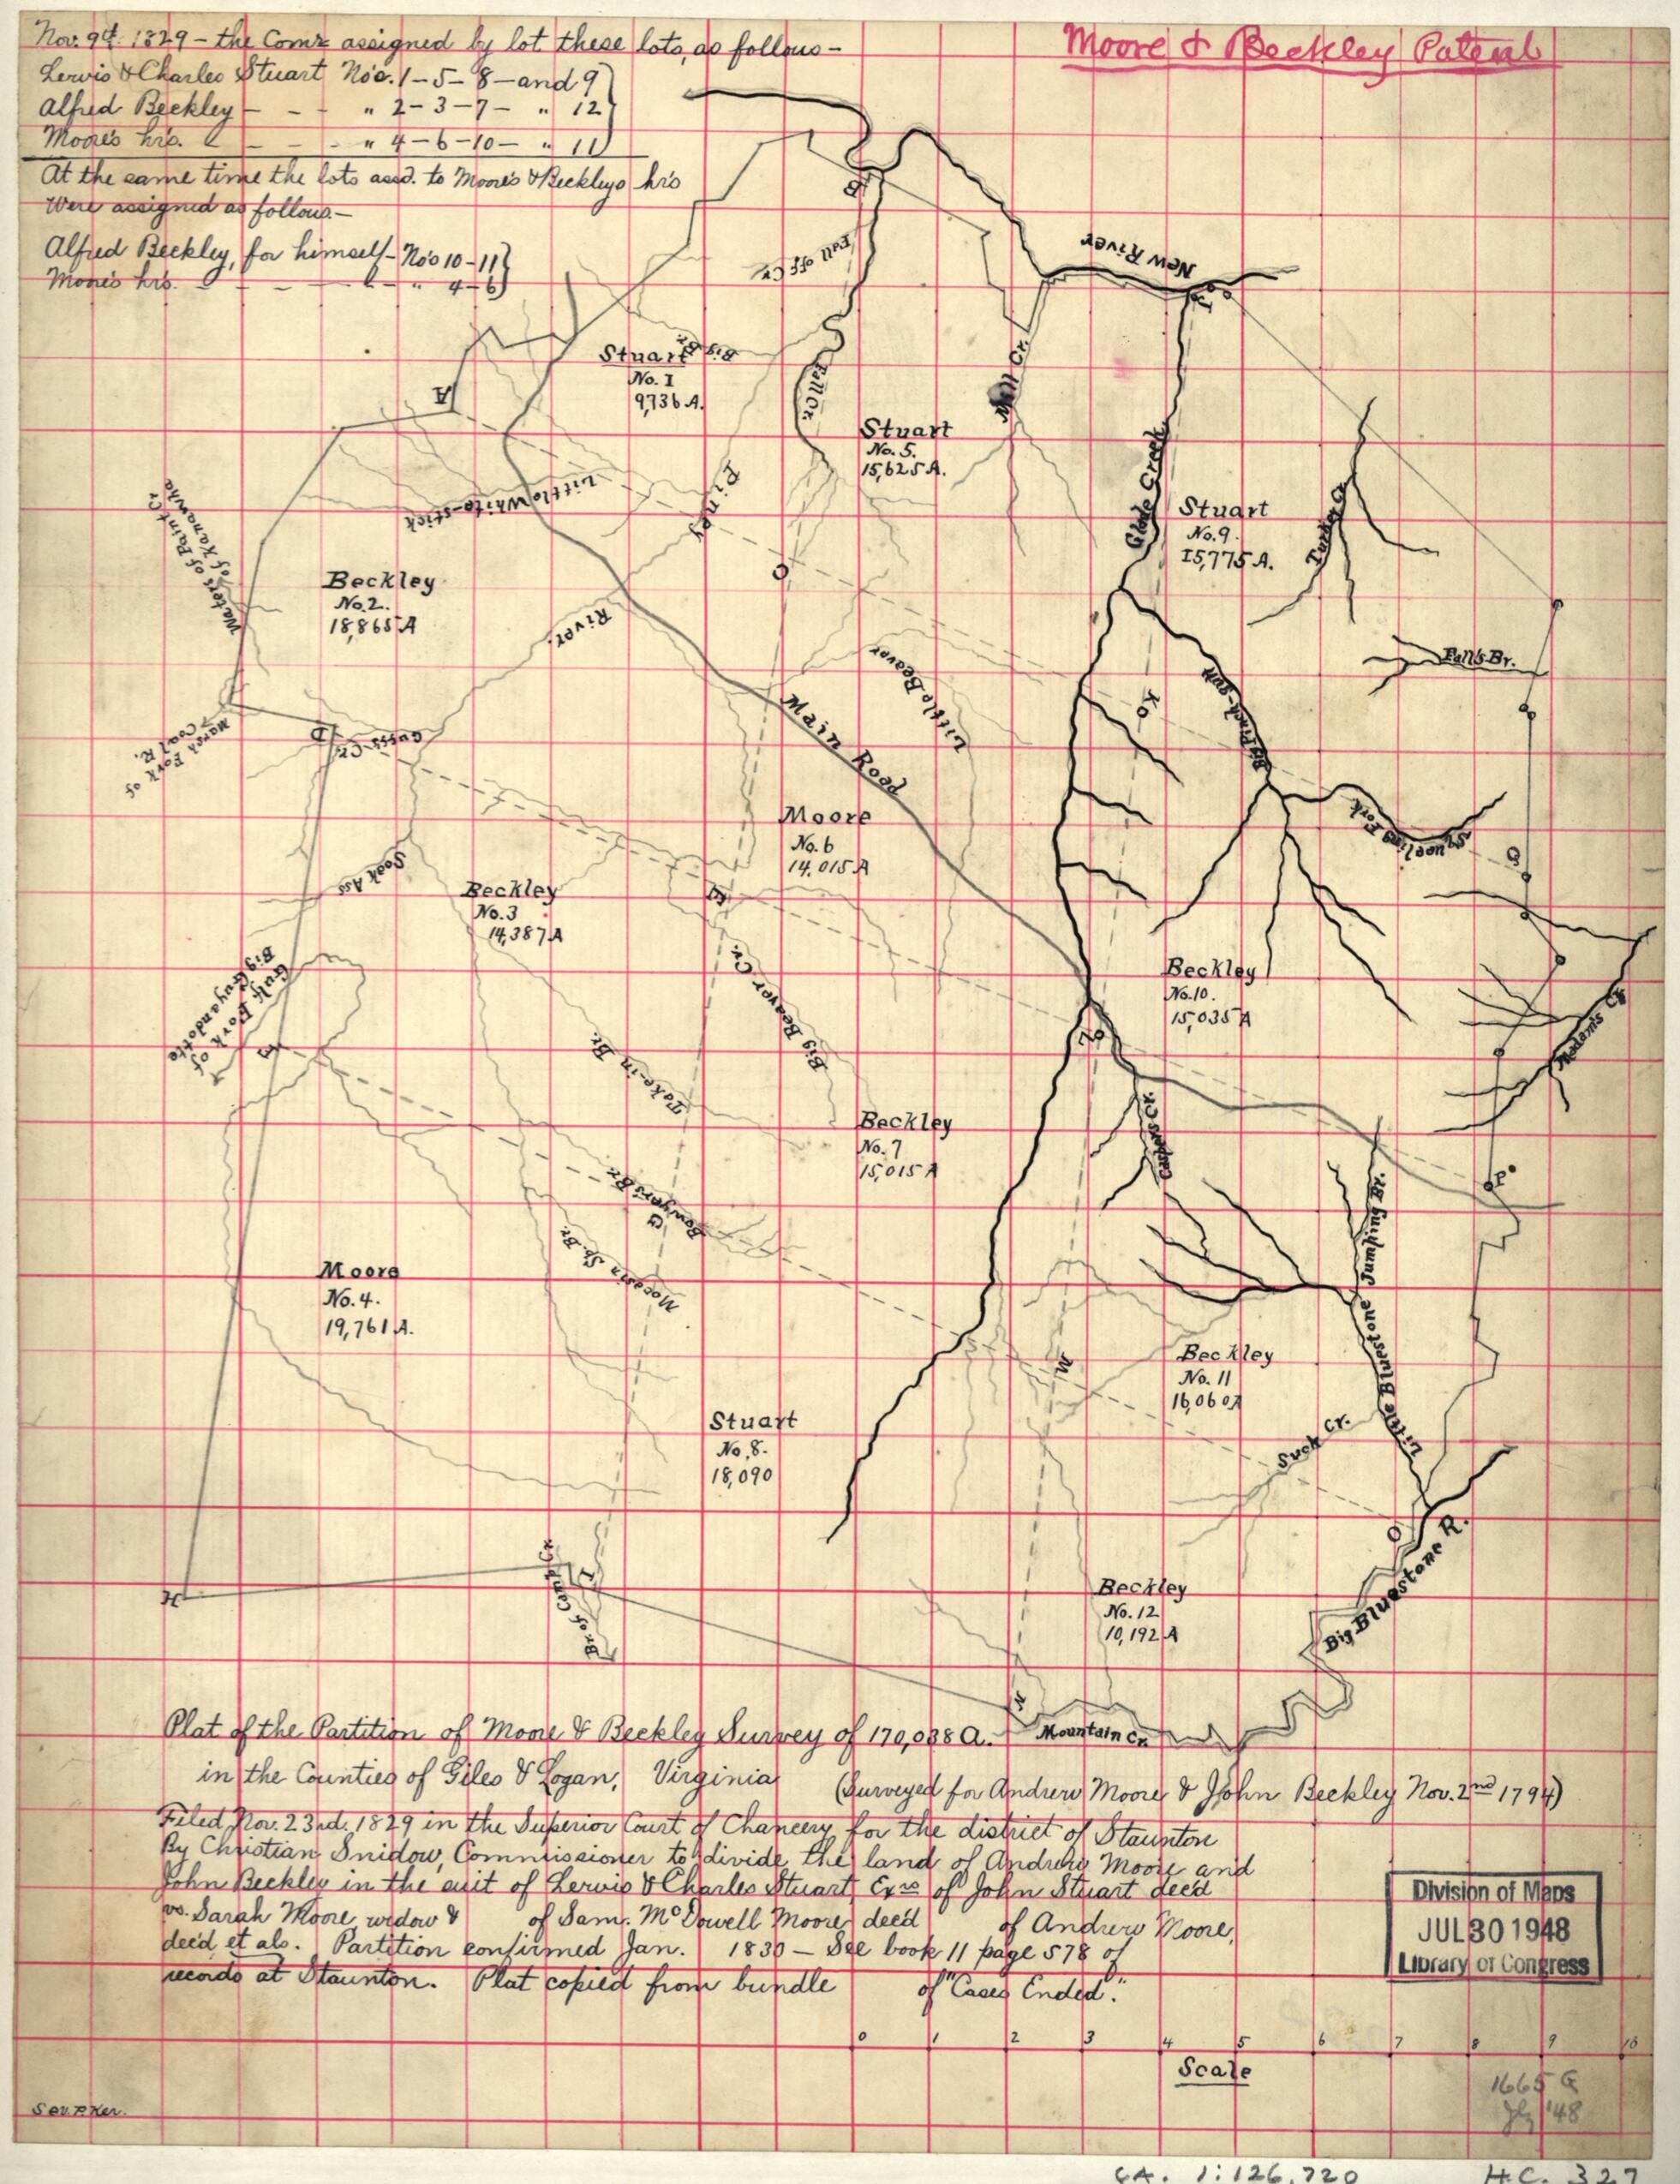 Nov. 9th. 1829 - the Comrs assigned by lot these lots, as follows -
Lewis & Charles Stuart No's. 1 - 5 - 8 - and 9
Alfred Beckley - - - " 2 - 3 - 7 - " 12
Moore's hrs. - - - " 4 - 6 - 10 - " 11
At the same time the lots assd. to Moore's & Beckleys hrs
were assigned as follows. -
Alfred Beckley, for himself - No's 10 - 11
Moore's hrs. - - - " 4 - 6
Moore & Beckley Patent
B
Fall off Cr.
New River
Big Br.
Stuart
No. I
9,736 A.
A
Fall Cr.
Mill Cr.
Stuart
No. 5.
15,625 A.
Glade Creek
Stuart
No. 9.
15,775 A.
Turkey Cr.
Little White-stick
Piney
River.
Waters of Paint Cr.
of Kanawha
C
Beckley
No. 2.
18,865 A
Little Beaver
Fall's Br.
Main Road
K
Big Pinch-gut
Marsh Fork of
Coal R.
D
Guess Cr.
Moore
No. 6
14,015 A
Snoeling Fork
Q
Soak Ass
Beckley
No. 3
14,387 A
E
Big Beaver Cr.
Gulf Fork of
Big Guyandotte
F
Beckley
No. 10.
15,035 A
Madam's Cr.
Take-in Br.
Beckley
No. 7
15,015 A
P
Bowyers Br.
G
Mocasin Sp. Br.
Jumping Br.
Moore
No. 4.
19,761 A.
Little Bluestone
M
Beckley
No. 11
16,060 A
Suck Cr.
Stuart
No. 8.
18,090
O
Big Bluestone R.
H
I
Br. of Camp Cr.
Beckley
No. 12
10,192 A
N
Mountain Cr.
Plat of the Partition of Moore & Beckley Survey of 170,038 A.
in the Counties of Giles & Logan, Virginia (Surveyed for Andrew Moore & John Beckley Nov. 2nd 1794)
Filed Nov. 23rd. 1829 in the Superior Court of Chancery for the district of Staunton
By Christian Snidow, Commissioner to divide the land of Andrew Moore and
John Beckley in the suit of Lewis & Charles Stuart, Exrs of John Stuart dec'd
vs. Sarah Moore, widow & of Sam. McDowell Moore, dec'd of Andrew Moore,
dec'd, et als. Partition confirmed Jan. 1830 - See book 11 page 578 of
records at Staunton. Plat copied from bundle of "Cases Ended".
Division of Maps
JUL 30 1948
Library of Congress
0 1 2 3 4 5 6 7 8 9 10
Scale
1665 G
Jly '48
CA. 1:126,720
H.C. 327